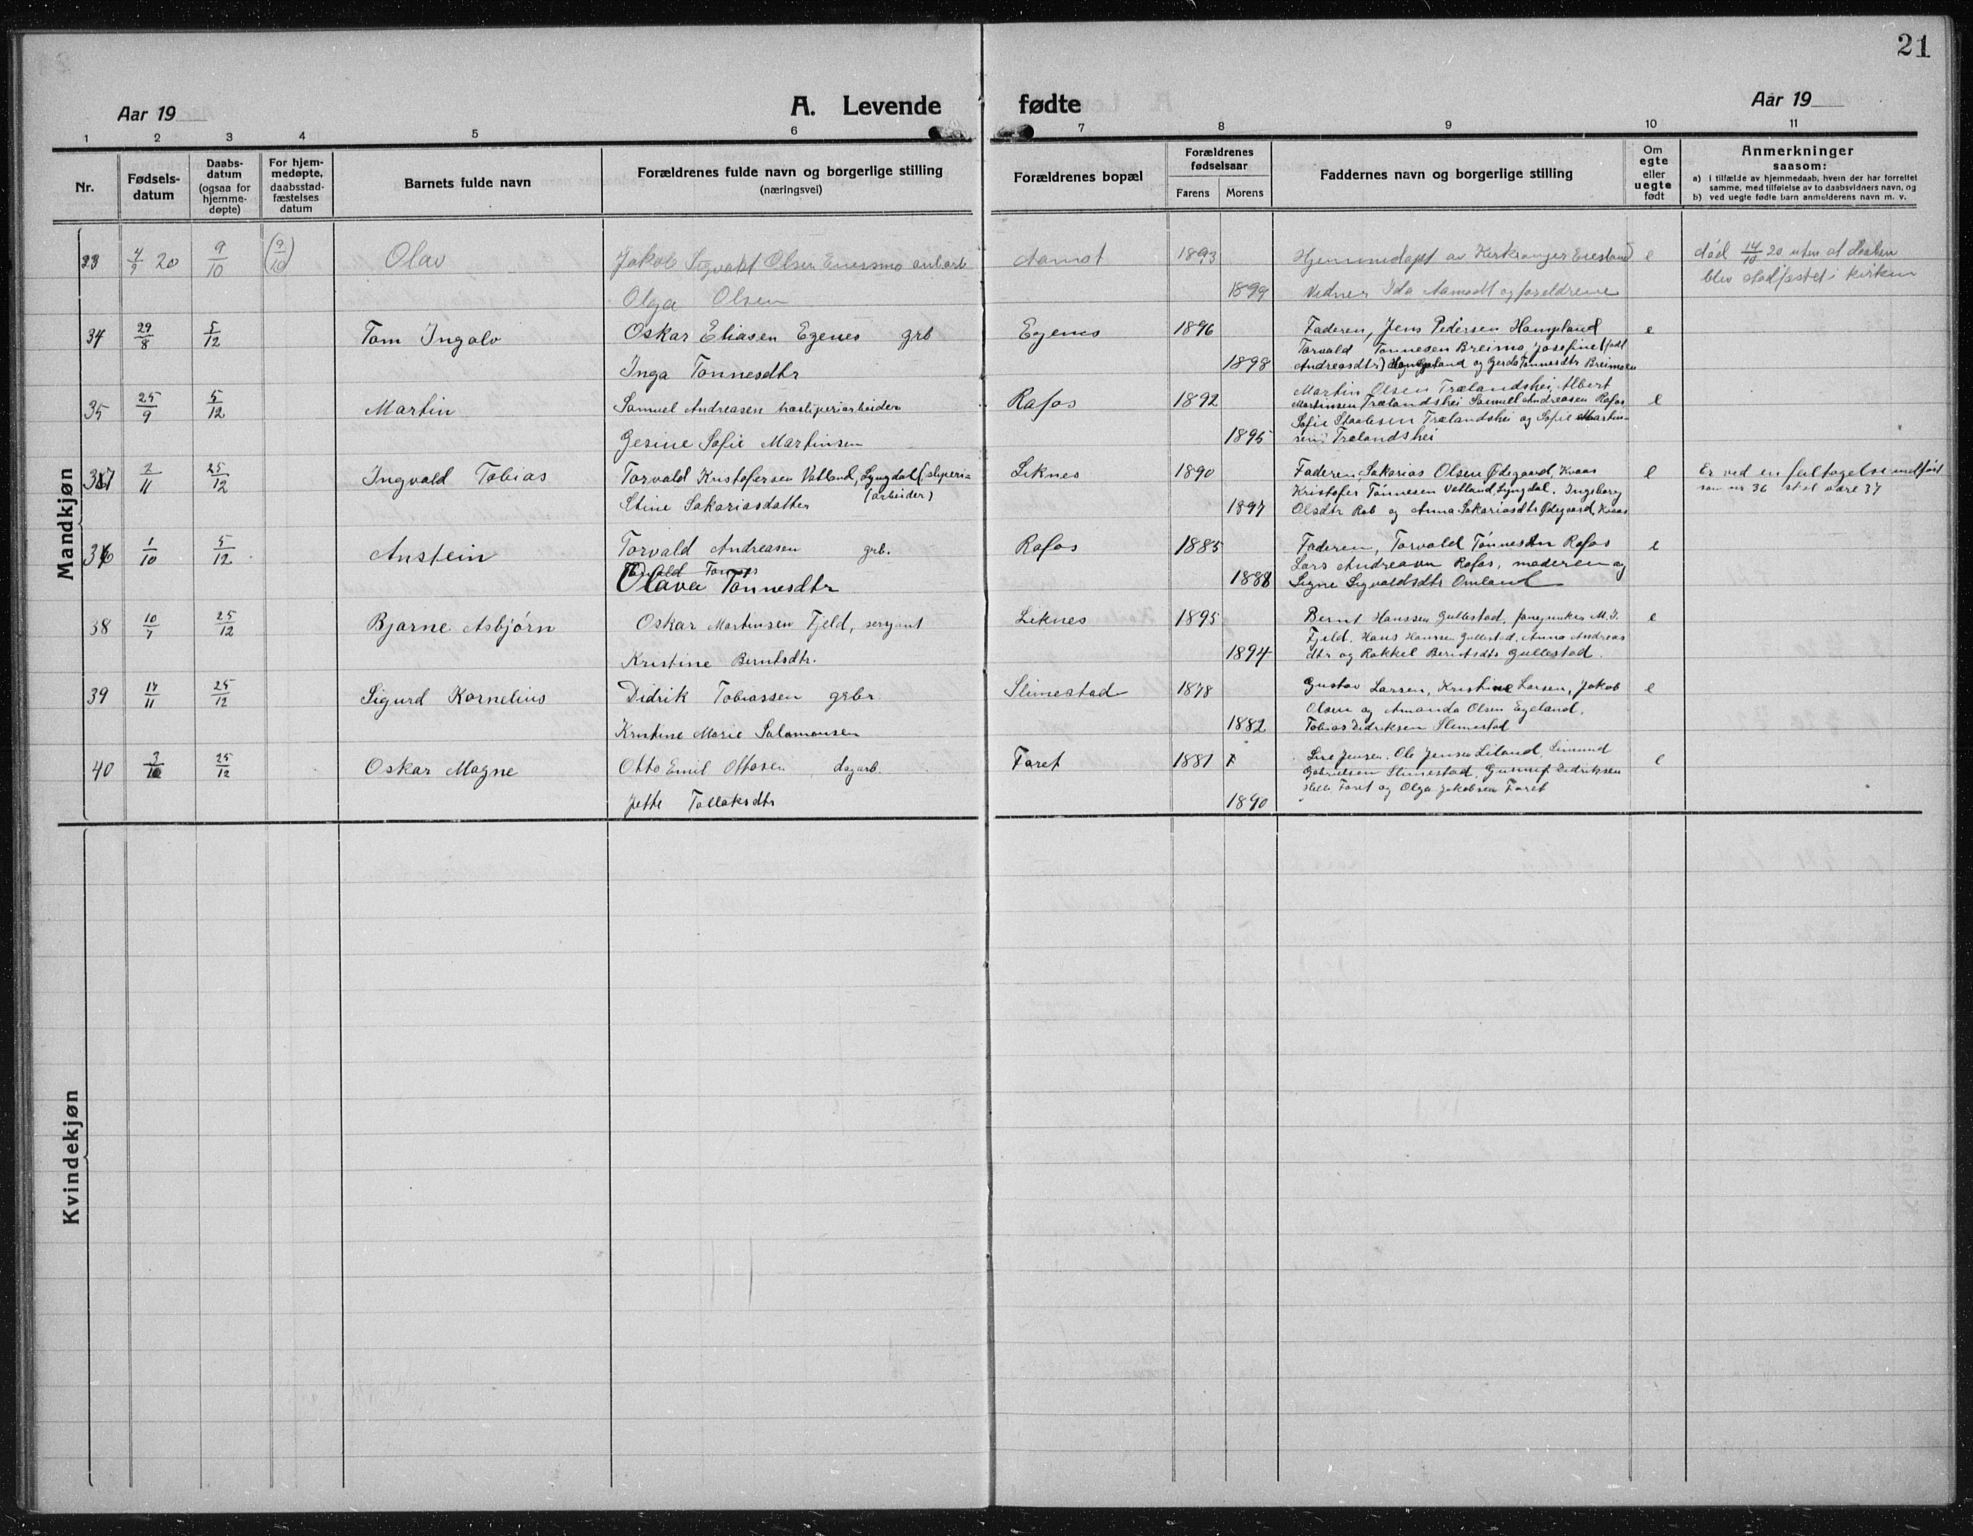 21
Aar 19
A. Levende
fødte
Aar 19
1 2 3 4 5 6 7 8 9 10 11
Nr.
Fødsels-
datum
Daabs-
datum
(ogsaa for
hjemme-
døpte)
For hjem-
medøpte,
daabsstad-
fæstelses
datum
Barnets fulde navn
Forældrenes fulde navn og borgerlige stilling
(næringsvei)
Forældrenes bopæl
Forældrenes
fødselsaar
Farens Morens
Faddernes navn og borgerlige stilling
Om
egte
eller
uegte
født
Anmerkninger
saasom:
a) i tilfælde av hjemmedaab, hvem der har forrettet
samme, med tilføielse av to daabsvidners navn, og
b) ved uegte fødte barn anmelderens navn m. v.
Mandkjøn
33 20 9/10 (9/10) Olav Jakob Sigvald Olsen Aamot 1893 Hjemmedøpt av e død 14/10 20 uten at daaben
Olga Olsen 1899 Vidner Ida Aamodt og foreldrene blev stadfæstet i kirken
34 29/8 5/12 Tom Ingolv Oskar Eliasen Egenes grb Egenes 1896 Faderen, Jens Pedersen Haugeland e
Torvald Tønnesen Breimo, Josefine
Inga Tønnesdtr 1898 Andreasdtr) Haugeland og Gerda Tønnesdtr Breimoen
35 25/9 5/12 Martin Samuel Andreasen Rafos 1892 Martin Olsen Trælandshei, Albert
Martinsen Trælandshei Samuel Andreasen Rafos e
Gesine Sofie Martinsen 1895 Sofie Trælandshei og Sofie Martin-
sen, Trælandshei
37 2/11 25/12 Ingvald Tobias Torvald Kristofersen Vatland, Lyngdal (sliperi-
arbeider) Liknes 1890 Faderen, Sakarias Olsen Ødegaard, Kvaas e Er ved en fœiltagelse indført
Kristofer Tønnesen Vatland, Lyngdal. Ingeborg som nr. 36 skal være 37
Stine Sakariasdatter 1897 Olsdtr Rob og Anna Sakariasdtr Ødegaard, Kvaas
36 1/10 5/12 Anstein Torvald Andreasen grb. Rafos 1885 Faderen, Torvald Tønnesen Rafos e
Lars Andreasen Rafos, moderen og
Olava Tønnesdtr 1888 Signe Sigvaldsdtr Omland
38 10/7 25/12 Bjarne Asbjørn Oskar Martinsen Fjeld, sersjant Liknes 1895 Bernt Hanssen Gullestad, M. I. e
Fjeld, Hans Hanssen Gullestad, Anna Andreas
Kristine Berntsdtr. 1894 dtr og Rakkel Berntsdtr Gullestad.
39 17/11 25/12 Sigurd Kornelius Didrik Tobiassen grbr Slimestad 1878 Gustav Larsen, Kristine Larsen, Jakob e
Olsen og Amanda Olsen Egeland.
Kristine Marie Salamonsen 1882 Tobias Didriksen Slimestad
40 3/10 25/12 Oskar Magne Otto Emil Ottosen dagarb. Faret 1881 Jensen. Ole Jensen Liland Simund e
Gabrielsen Slimestad, Didriksen
Jette Tollaksdtr 1890 Faret og Olga Jakobsen Faret
Kvindekjøn